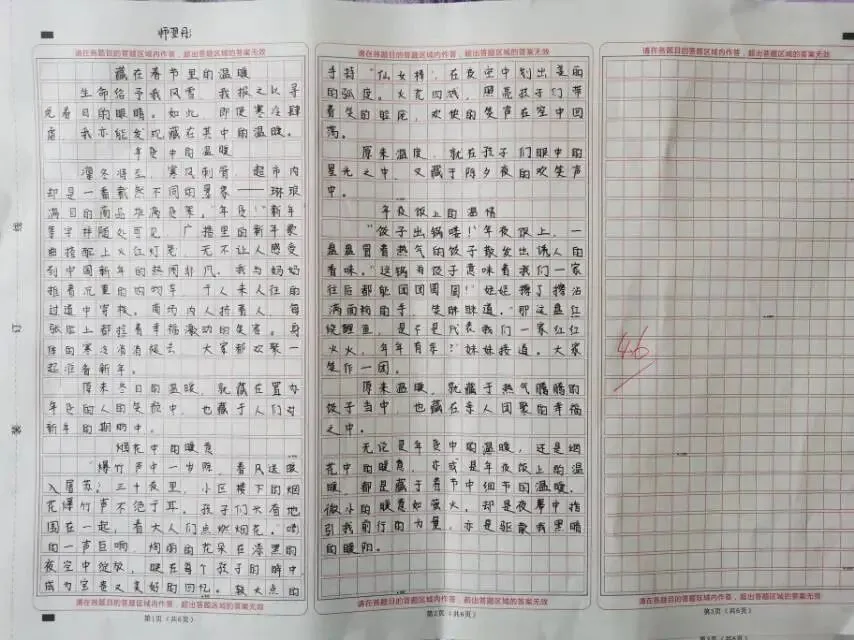 师思彤
请在各题目的答题区域内作答，超出答题区域的答案无效
藏在春节里的温暖
生命给予我风雪，我报之以寻
觅春日的眼睛。如此，即使寒冷肆
虐，我亦能发现藏在其中的温暖。
年货中的温暖
凛冬将至，寒风刺骨，超市内
却是一番截然不同的景象——琳琅
满目的商品堆满货架，“年货”“新年”
等字样随处可见，广播里的新年歌
曲搭配上火红灯笼，无不让人感受
到中国新年的热闹非凡。我与妈妈
推着沉重的购物车，于人来人往的
过道中穿梭。商场内人挤着人，每
张脸上都挂着幸福激动的笑容。身
体的寒冷消消褪去，大家都欢聚一
起准备新年。
原来冬日的温暖，就藏在置办
年货的人的笑颜中，也藏于人们对
新年的期盼中。
烟花中的暖意
“爆竹声中一岁除，春风送暖
入屠苏”三十夜里，小区楼下的烟
花爆竹声不绝于耳。孩子们乐着地
围在一起，看大人们点燃烟花。“嘭”
的一声巨响，绚丽的花朵在漆黑的
夜空中绽放，映在每个孩子的眸中
成为宝贵又美好的回忆。较大点的
请在各题目的答题区域内作答，超出答题区域的答案无效
第1页（共6页）
请在各题目的答题区域内作答，超出答题区域的答案无效
手持“仙女棒”，在夜空中划出美丽
的弧度。火花四溅，照亮孩子们带
着笑的脸庞，欢快的笑声在空中回
荡。
原来温度，就在孩子们眼中的
星光之中，又藏于除夕夜的欢笑声
中。
年夜饭上的温情
“饺子出锅喽！”年夜饭上，一
盘盘冒着热气的饺子散发出诱人的
香味。“这锅的饺子意味着我们一家
往后都能团团圆圆！”姥姥搓了搓沾
满面粉的手，笑眯眯道。“那这盘红
烧鲤鱼，是不是代表我们一家红红
火火，年年有余？”妹妹接道。大家
笑作一团。
原来温暖，就藏于热气腾腾的
饺子当中，也藏在亲人团聚的幸福
之中。
无论是年货中的温暖，还是烟
花中的暖意，亦或是年夜饭上的温
暖，都是藏于春节中细节的温暖。
微小的暖意如萤火，却是夜幕中指
引我前行的力量，亦是驱散我黑暗
的暖阳。
请在各题目的答题区域内作答，超出答题区域的答案无效
第2页（共6页）
请在各题目的答题区域内作答，超出答题区域的答案无效
46
请在各题目的答题区域内作答，超出答题区域的答案无效
第3页（共6页）
订